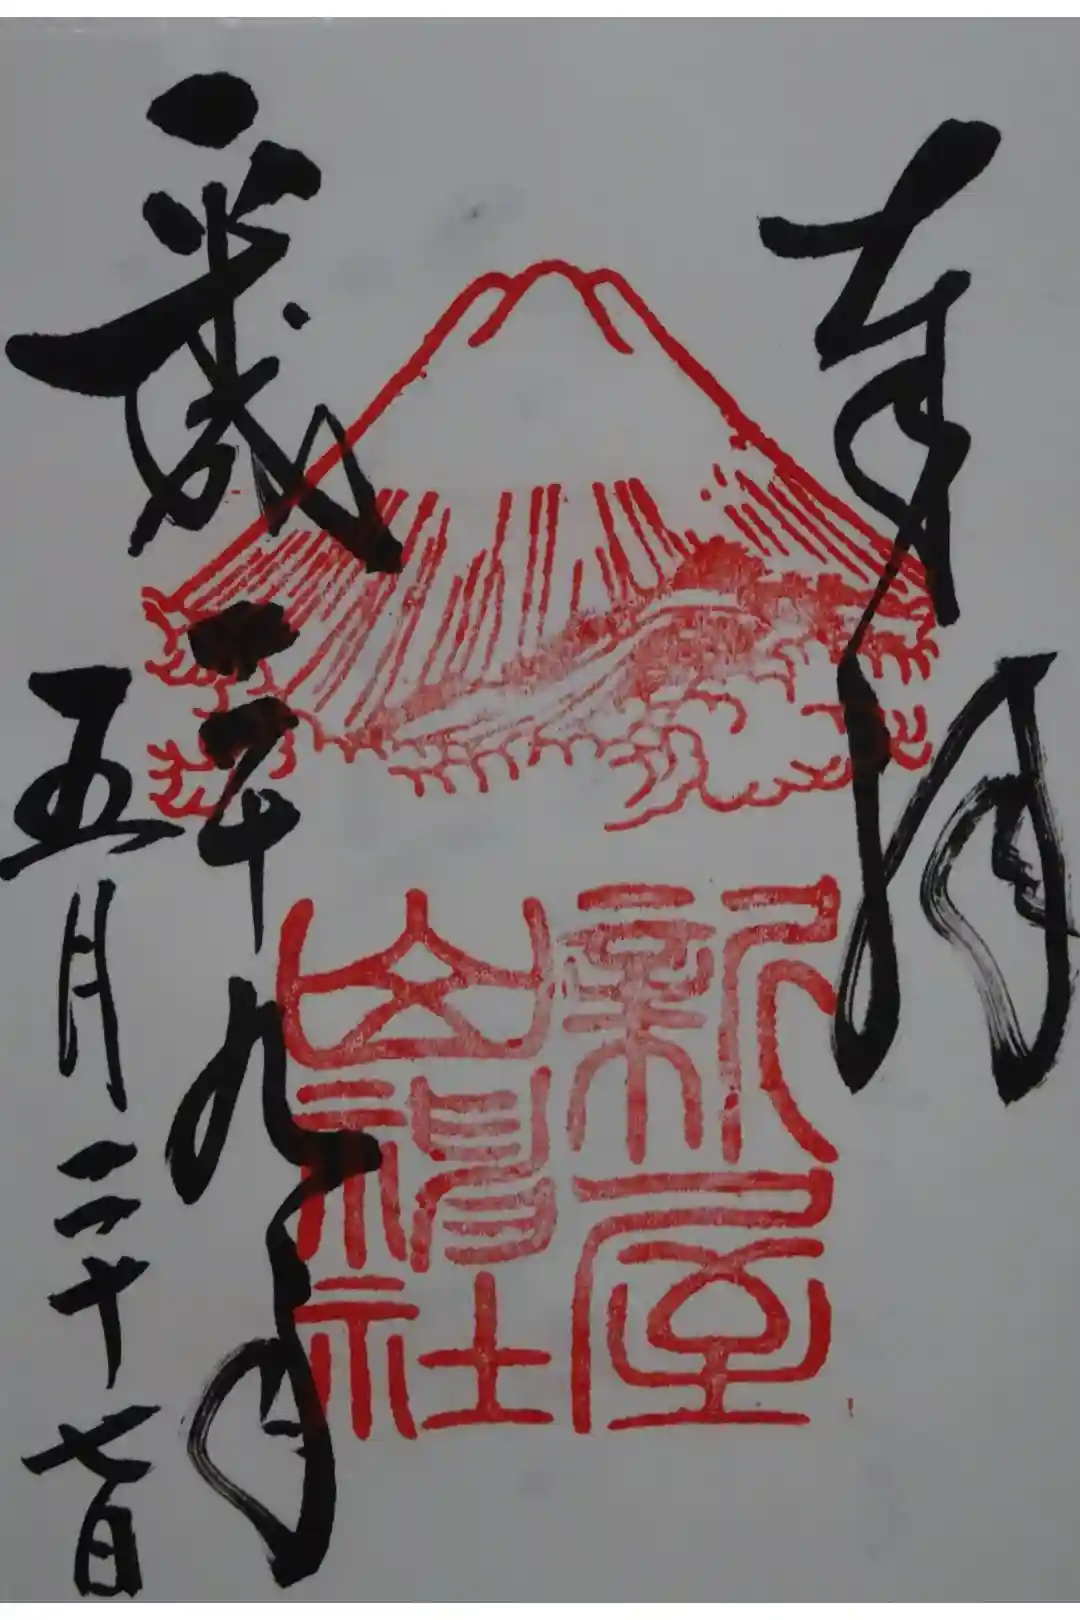 奉拝
新屋
山神社
平成二十九年
五月二十七日